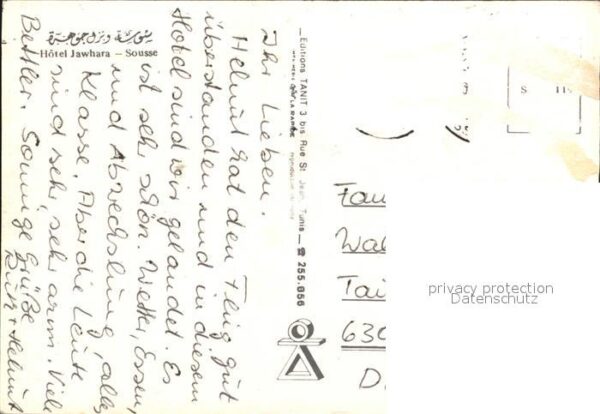 سوسة ونزل جوهرة
Hôtel Jawhara – Sousse
Ihr Lieben.
Helmut hat den Flug gut
überstanden und in diesem
Hotel sind wir gelandet. Es
ist sehr schön. Wetter, Essen,
und Abwechslung, alles
Klasse. Aber die Leute
sind sehr, sehr arm. Viele
Bettler. Sonnige Grüße
Ruth + Helmut
Editions TANIT 3 bis Rue St Jean, Tunis ☎ 255.056
S H
Fam
Wal
Tai
630
D
privacy protection
Datenschutz